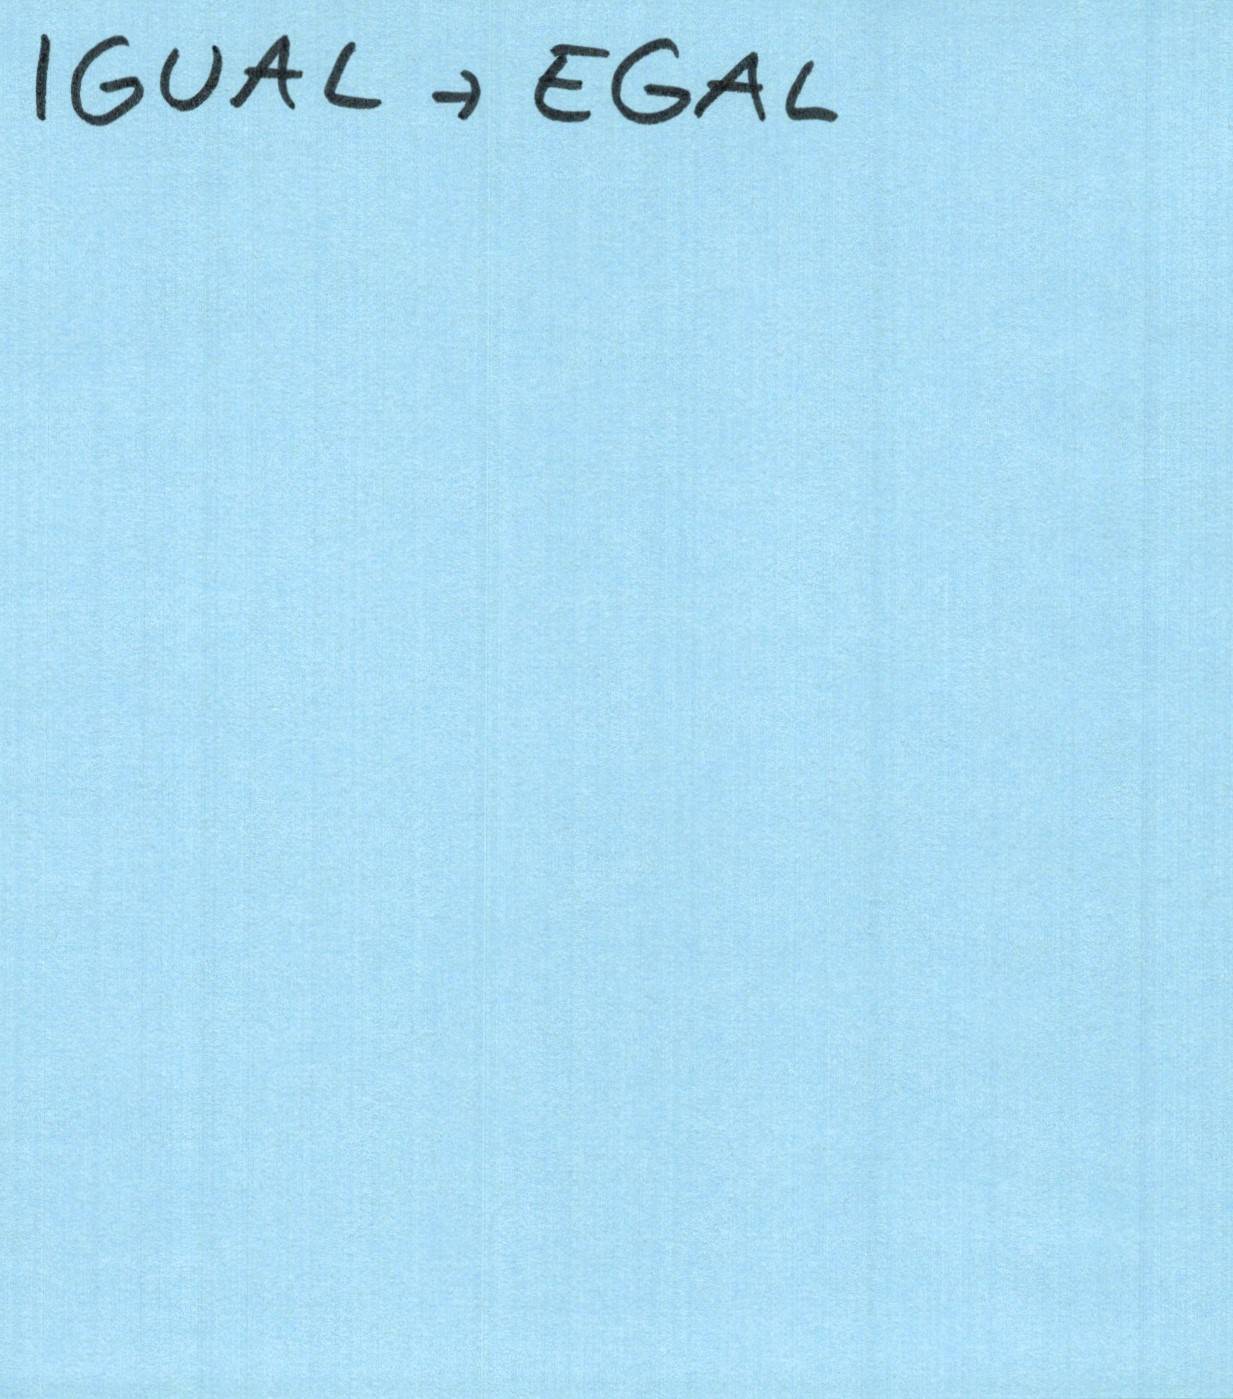 IGUAL → EGAL